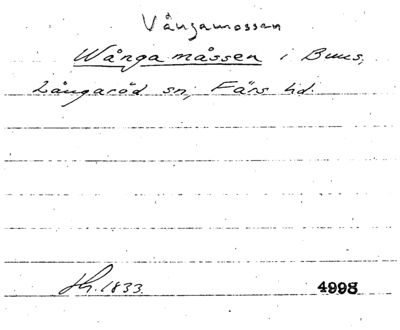 Vångamossen
Wånga måssen i Buus,
Långaröd sn, Färs hd.
1833. 4998